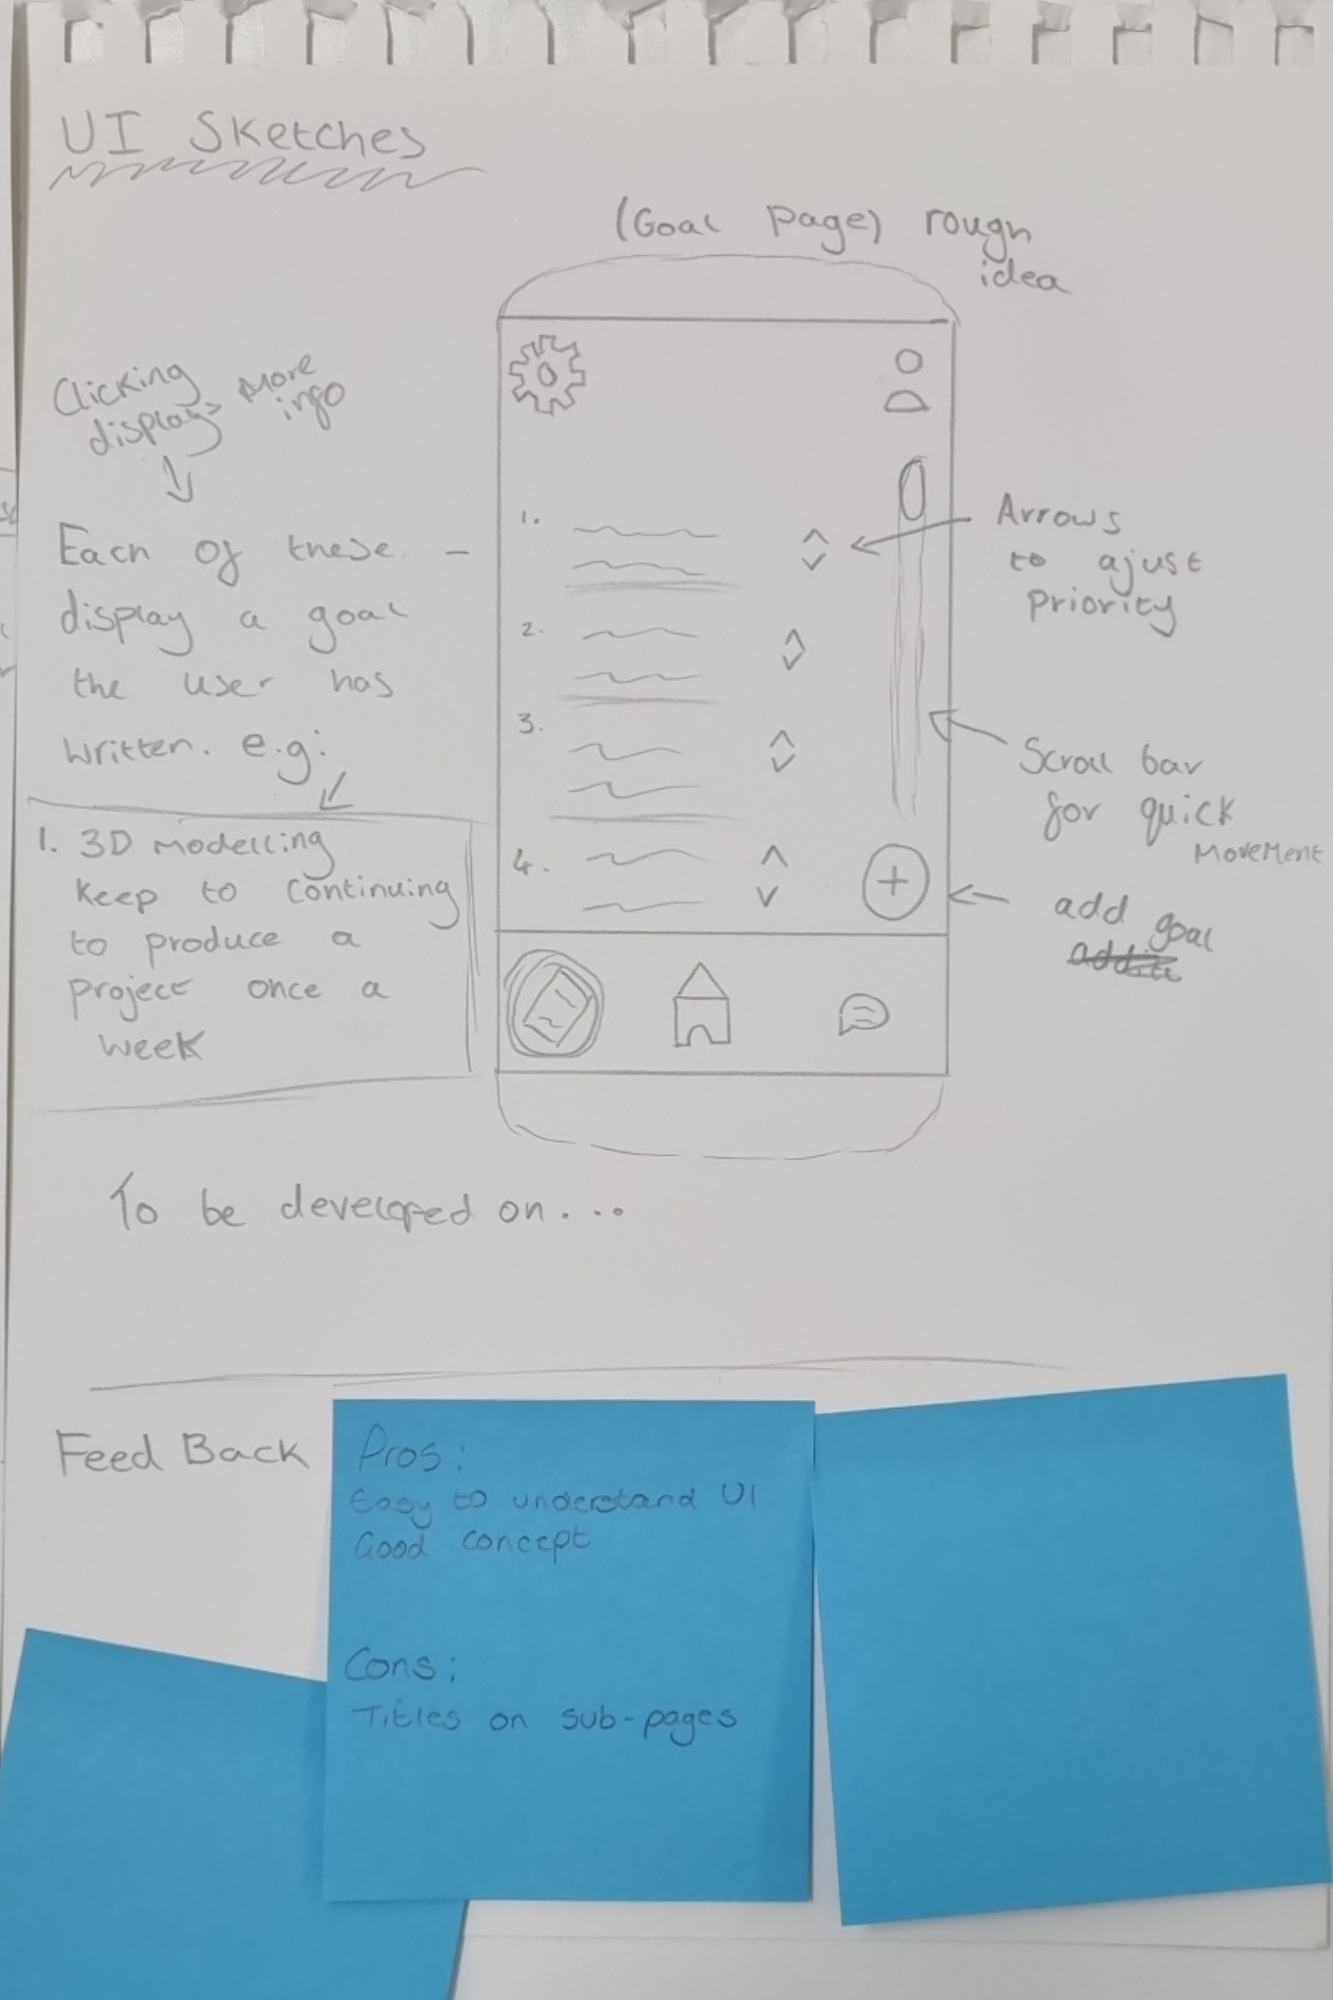 UI Sketches
(Goal page) rough
idea
Clicking
displays
More
info
Each of these -
display a goal
the user has
written. e.g:
1. 3D Modelling
Keep to continuing
to produce a
project once a
week
1.
2.
3.
4.
+
Arrows
to ajust
priority
Scroll bar
for quick
Movement
add goal
To be developed on...
Feed Back
Pros:
Easy to understand UI
Good concept
Cons:
Titles on sub-pages